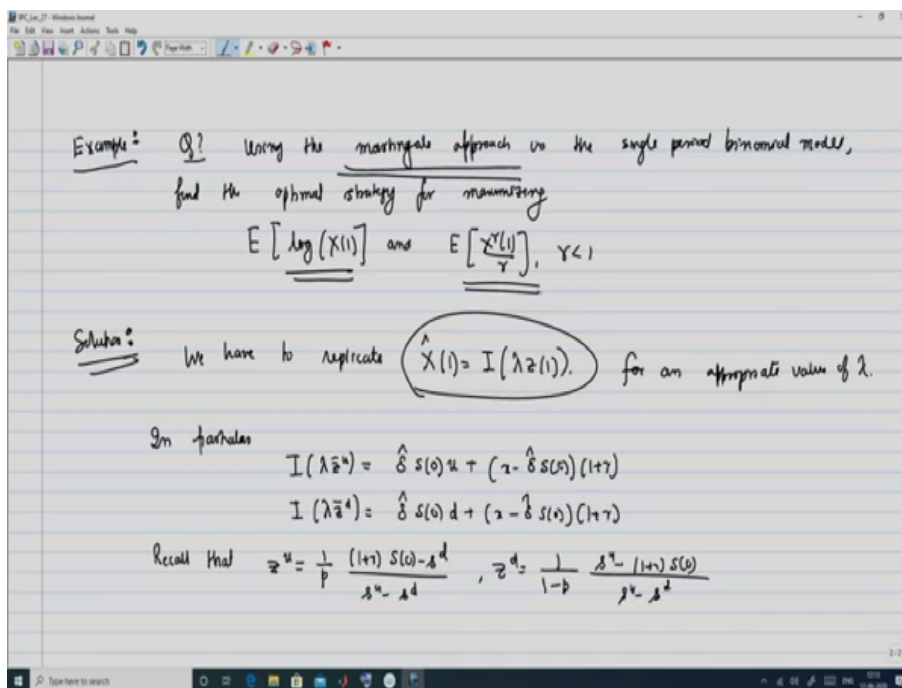 SPC_Lec_27 - Windows Journal
File Edit View Insert Actions Tools Help
Page Width
Example: Q? Using the martingale approach in the single period binomial model,
find the optimal strategy for maximizing
E [log (X(1)] and E [X^γ(1)/γ], γ<1
Solution: We have to replicate X̂(1) = I(λz(1)). for an appropriate value of λ.
In particular
I(λz̄^u) = δ̂ S(0) u + (x - δ̂ S(0)) (1+r)
I(λz̄^d) = δ̂ S(0) d + (x - δ̂ S(0)) (1+r)
Recall that z^u = 1/p ((1+r) S(0) - s^d)/(s^u - s^d), z^d = 1/(1-p) (s^u - (1+r) S(0))/(s^u - s^d)
2/2
Type here to search
ENG
12:13